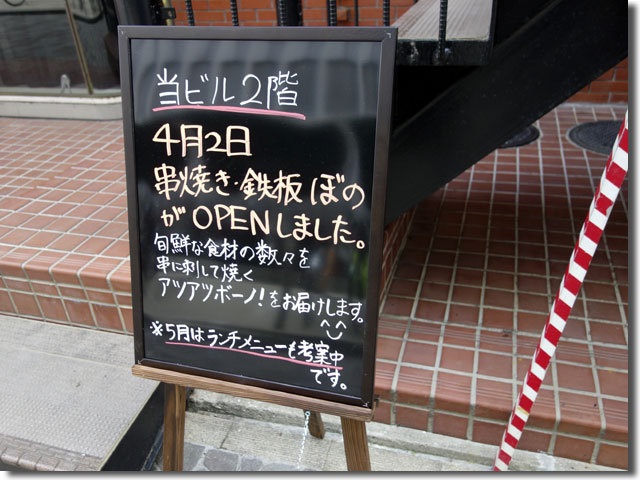 当ビル2階
4月2日
串焼き・鉄板 ぼの
が OPENしました。
旬鮮な食材の数々を
串に刺して焼く
アツアツボーノ!をお届けします。
^^
※5月はランチメニューも考案中
です。